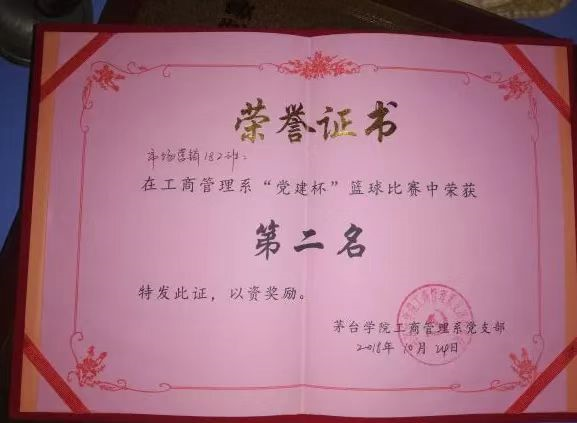 荣誉证书
市场营销182班：
在工商管理系“党建杯”篮球比赛中荣获
第二名
特发此证，以资奖励。
茅台学院工商管理系党支部
2018年10月24日